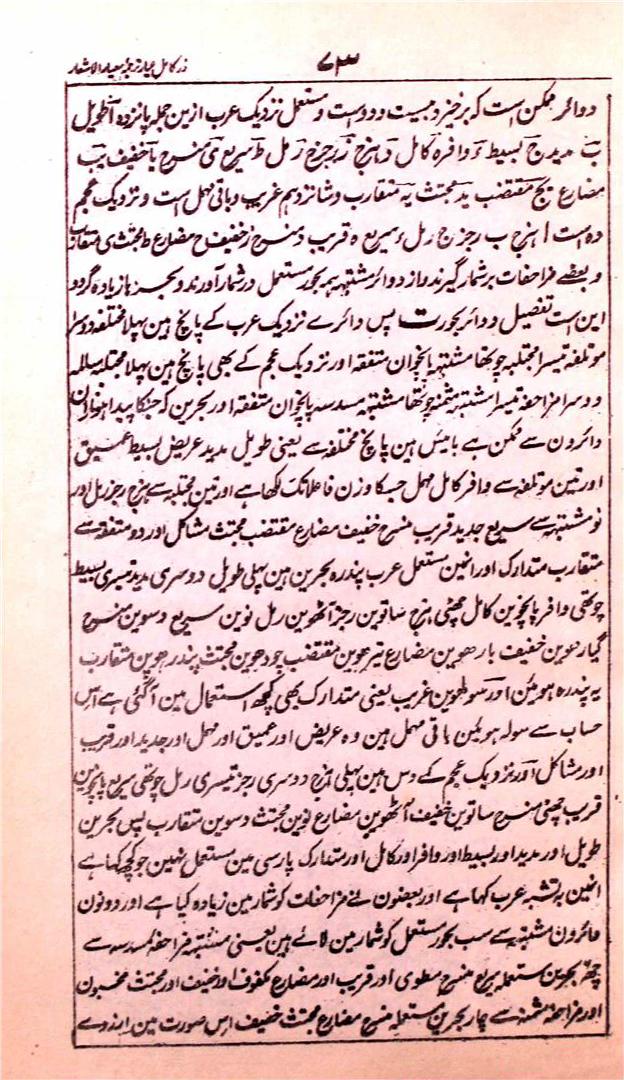 ۷۳ زر کامل عیار ترجمۂ معیار الاشعار
دوائر ممکن است کہ برخیزد بیست و دو است و مستعمل نزدیک عرب ازین جملہ پانزدہ آ طویل
ب مدید ج بسیط د وافر ہ کامل و ہزج ز رجز ح رمل ط سریع ی منسرح یا خفیف یب
مضارع یج مقتضب ید مجتث یہ متقارب و شانزدہم غریب و باقی مہمل است و نزدیک عجم
دہ است ا ہزج ب رجز ج رمل د سریع ہ قریب و منسرح ز خفیف ح مضارع ط مجتث ی متقارب
و بعضے مزاحفات بر شمار گیرند و از دوائر مشتبہہ ہمہ بحور مستعمل در شمار آورند و بحرہا زیادہ گردد
این است تفصیل دوائر بحورت پس دائرے نزدیک عرب کے پانچ ہین پہلا مختلفہ دوسرا
موتلفہ تیسرا مجتلبہ چوتھا مشتبہہ پانچوان متفقہ اور نزدیک عجم کے بھی پانچ ہین پہلا مجتلبہ سالمہ
دوسرا مزاحفہ تیسرا مشتبہہ مثمنہ چوتھا مشتبہہ مسدسہ پانچوان متفقہ اور بحرین کہ جنکا پیدا ہونا ان
دائرون سے ممکن ہے بائیس ہین پانچ مختلفہ سے یعنی طویل مدید عریض بسیط عمیق
اور تین موتلفہ سے وافر کامل مہمل جسکا وزن فاعلاتک لکھا ہے اور تین مجتلبہ سے ہزج رجز رمل اور
نو مشتبہہ سے سریع جدید قریب منسرح خفیف مضارع مقتضب مجتث مشاکل اور دو متفقہ سے
متقارب متدارک اور انمین مستعمل عرب پندرہ بحرین ہین پہلی طویل دوسری مدید تیسری بسیط
چوتھی وافر پانچوین کامل چھٹی ہزج ساتوین رجز آٹھوین رمل نوین سریع دسوین منسرح
گیارھوین خفیف بارھوین مضارع تیرھوین مقتضب چودھوین مجتث پندرھوین متقارب
یہ پندرہ ہوئین اور سولھوین غریب یعنی متدارک بھی کچھ استعمال مین آگئی ہے اس
حساب سے سولہ ہوئین باقی مہمل ہین وہ عریض اور عمیق اور مہمل اور جدید اور قریب
اور مشاکل اور نزدیک عجم کے دس ہین پہلی ہزج دوسری رجز تیسری رمل چوتھی سریع پانچوین
قریب چھٹی منسرح ساتوین خفیف آٹھوین مضارع نوین مجتث دسوین متقارب پس بحرین
طویل اور مدید اور بسیط اور وافر اور کامل اور متدارک پارسی مین مستعمل نہین جو کچھ کہا ہے
انمین بہ تشبہ عرب کہا ہے اور بعضون نے مزاحفات کو شمار مین زیادہ کیا ہے اور دونون
دائرون مشتبہہ سے سب بحور مستعمل کو شمار مین لائے ہین یعنی مشتبہہ مزاحفہ مسدسہ سے
چھہ بحرین مستعملہ سریع منسرح مطوی اور قریب اور مضارع مکفوف اور خفیف اور مجتث مخبون
اور مزاحفہ مثمنہ سے چار بحرین مستعملہ منسرح مضارع مجتث خفیف اس صورت مین ازروے